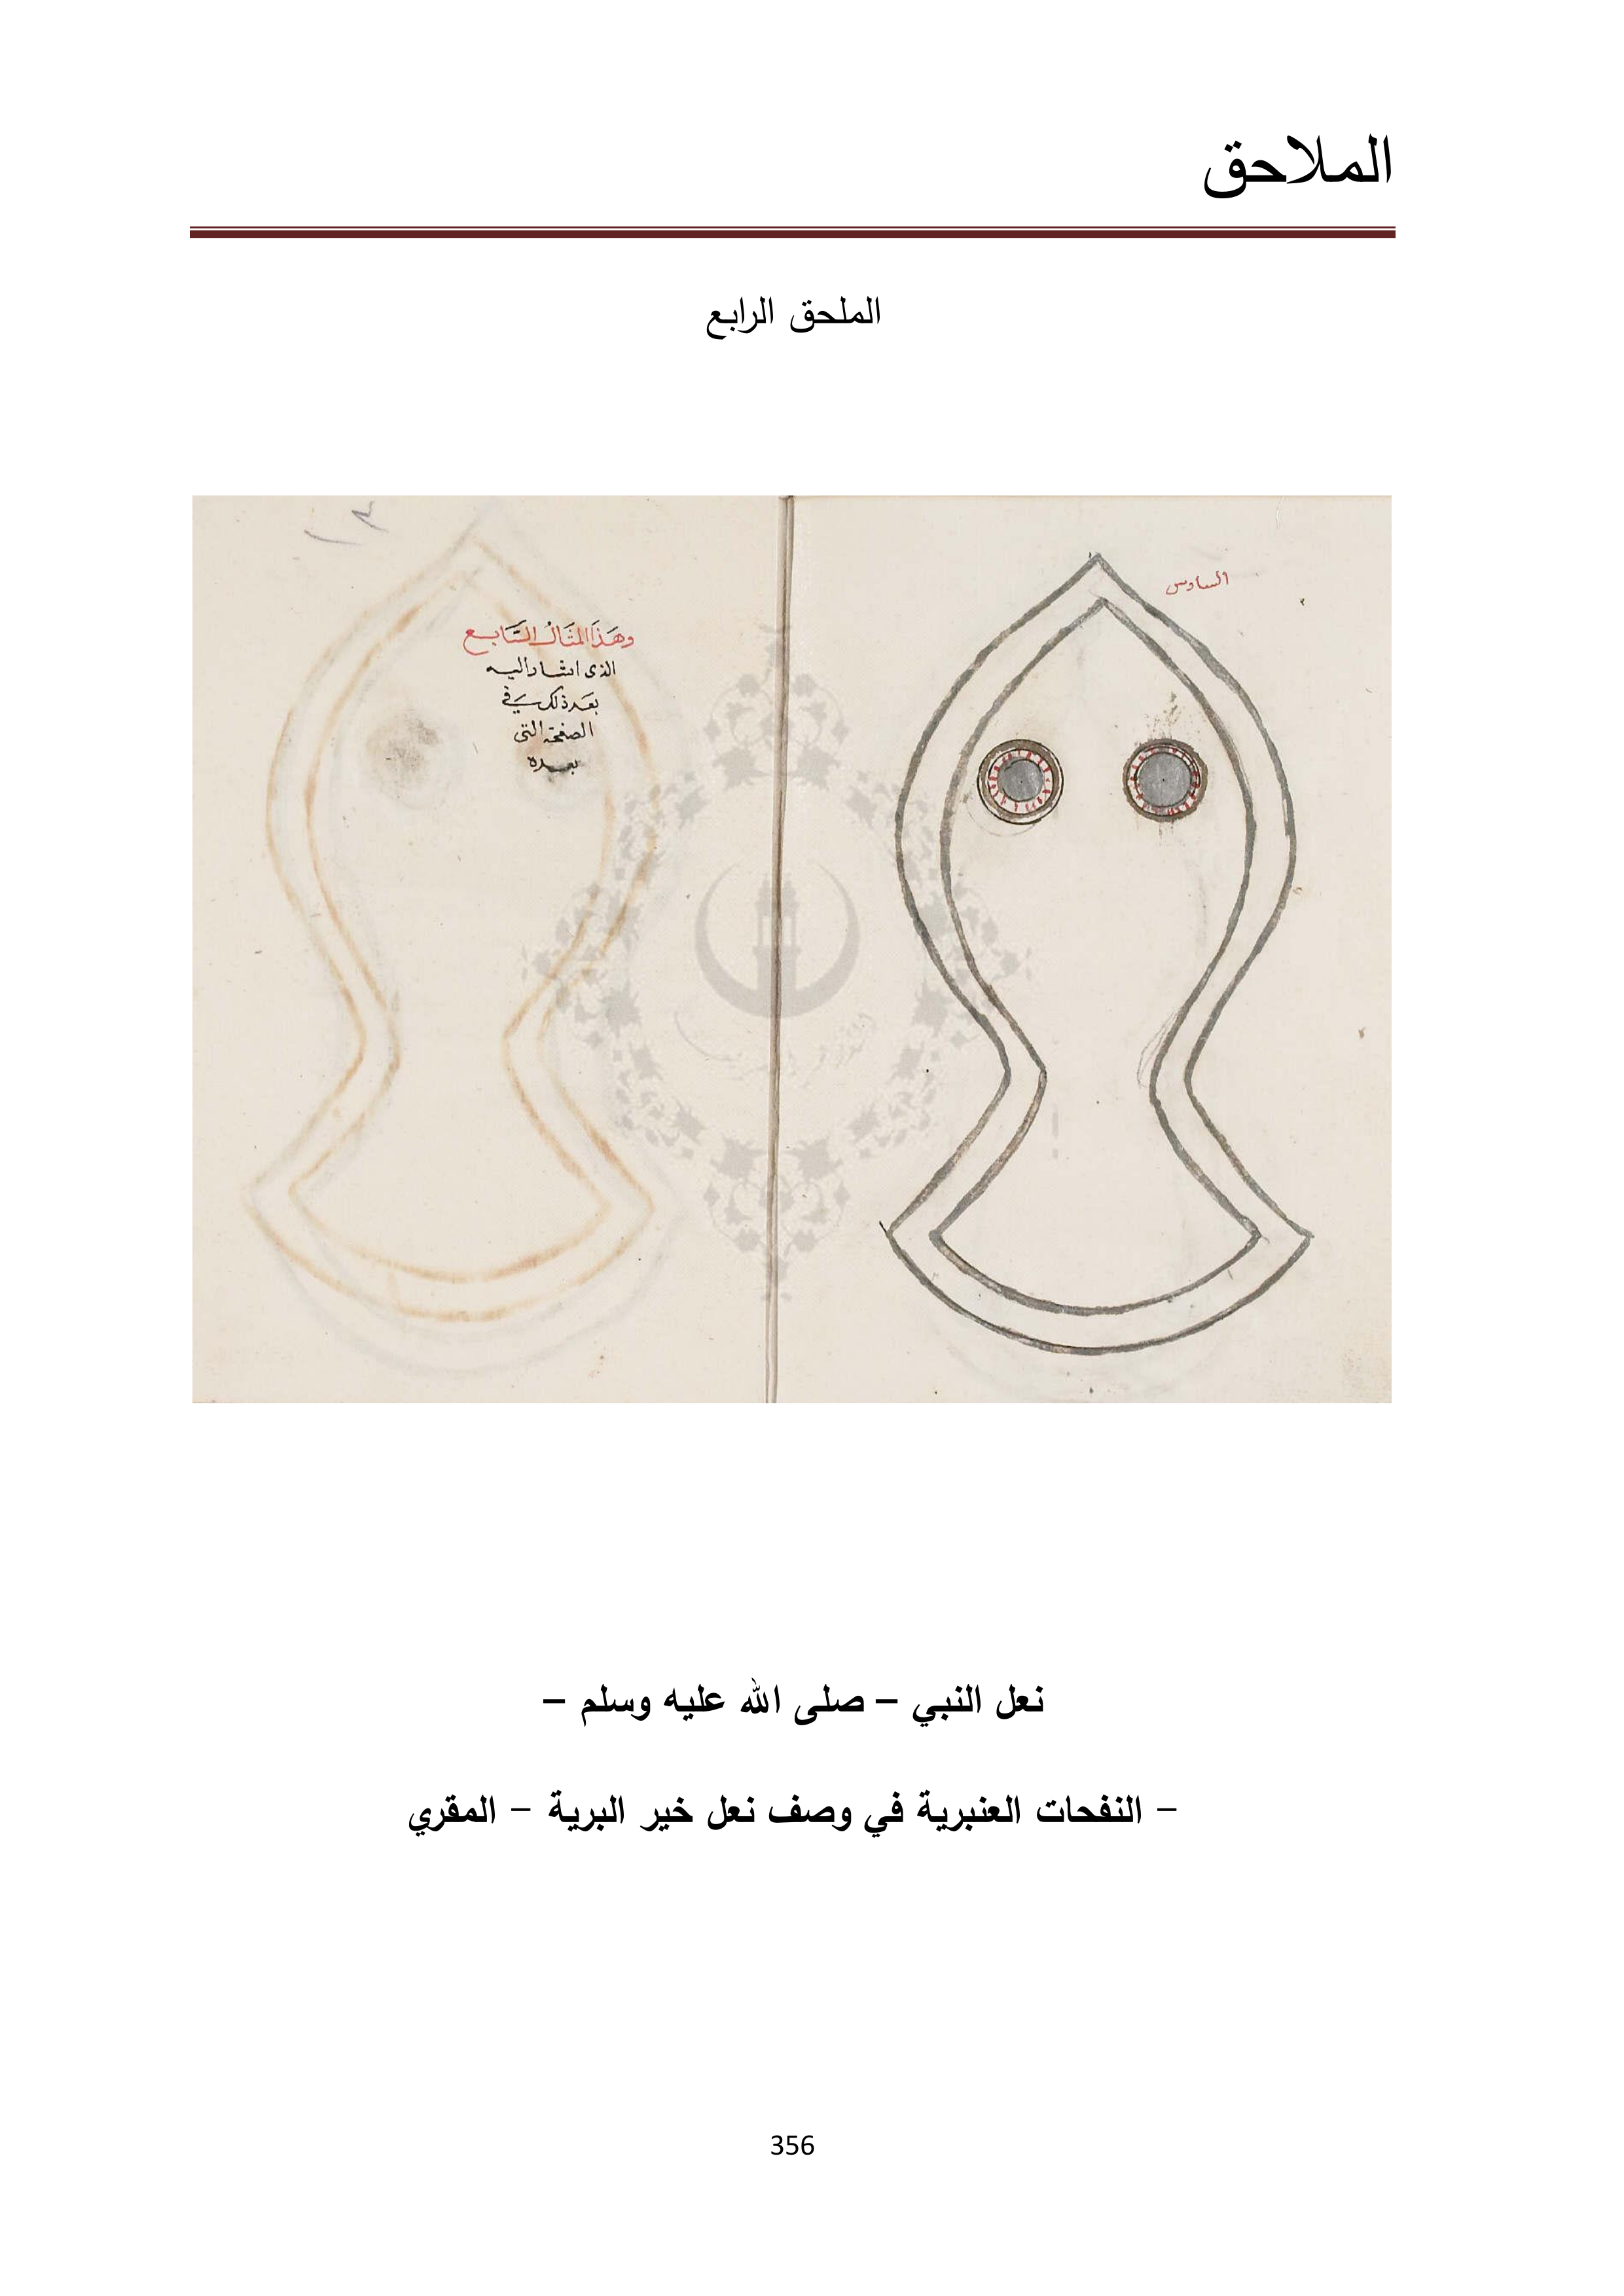 الملاحق
الملحق الرابع
السادس
وهَذَا المثَالُ السَّابع
الذى اشار اليه
بعَد ذلك في
الصفحة التى
بعده
نعل النبي – صلى الله عليه وسلم –
– النفحات العنبرية في وصف نعل خير البرية – المقري
356